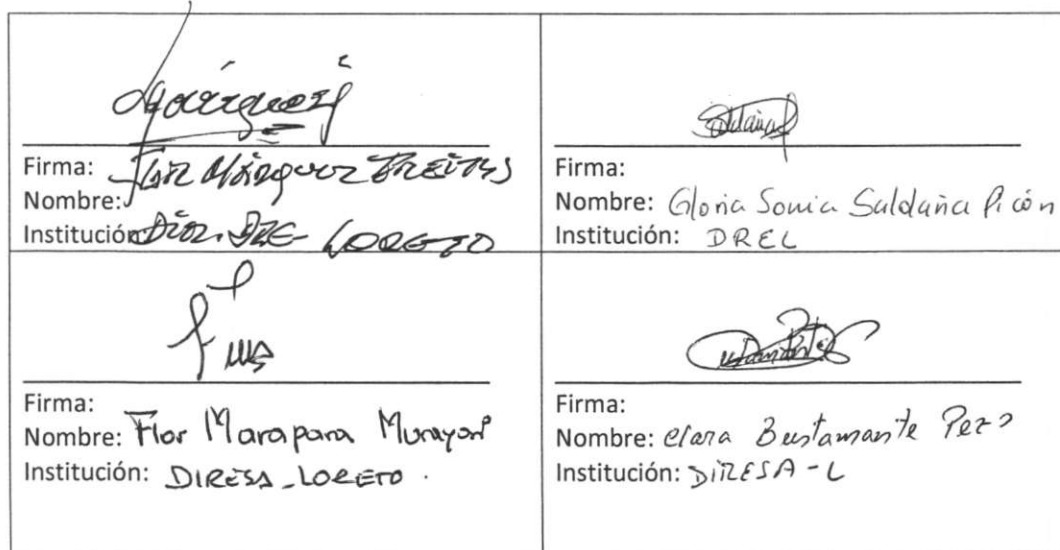 Firma:
Nombre: Márquez Freitas
Institución: LORETO
Saldaña
Firma:
Nombre: Gloria Sonia Saldaña Picón
Institución: DREL
Firma:
Nombre: Flor Marapara Murayari
Institución: DIRESA-LORETO.
Firma:
Nombre: Clara Bustamante Pezo
Institución: DIRESA-L